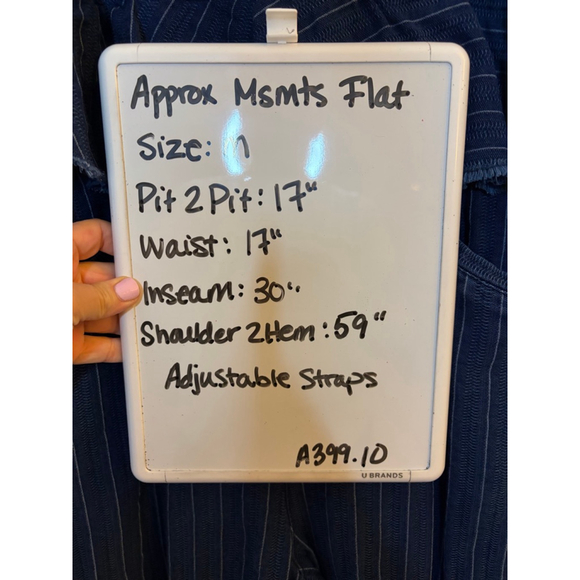 Approx Msmts Flat
Size: M
Pit 2 Pit: 17"
Waist: 17"
Inseam: 30"
Shoulder 2 Hem: 59"
Adjustable Straps
A399.10
U BRANDS